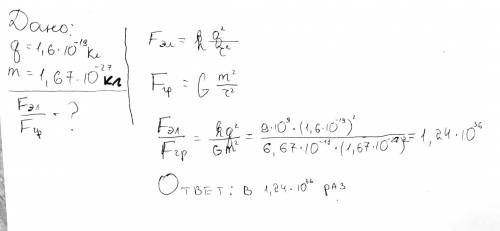 Дано:
q = 1,6·10⁻¹⁹ Кл
m = 1,67·10⁻²⁷ кл
Fэл/Fгр - ?
Fэл = k q²/r²
Fгр = G m²/r²
Fэл/Fгр = kq²/Gm² = 9·10⁹·(1,6·10⁻¹⁹)²/6,67·10⁻¹¹·(1,67·10⁻²⁷)² = 1,24·10³⁶
Ответ: в 1,24·10³⁶ раз